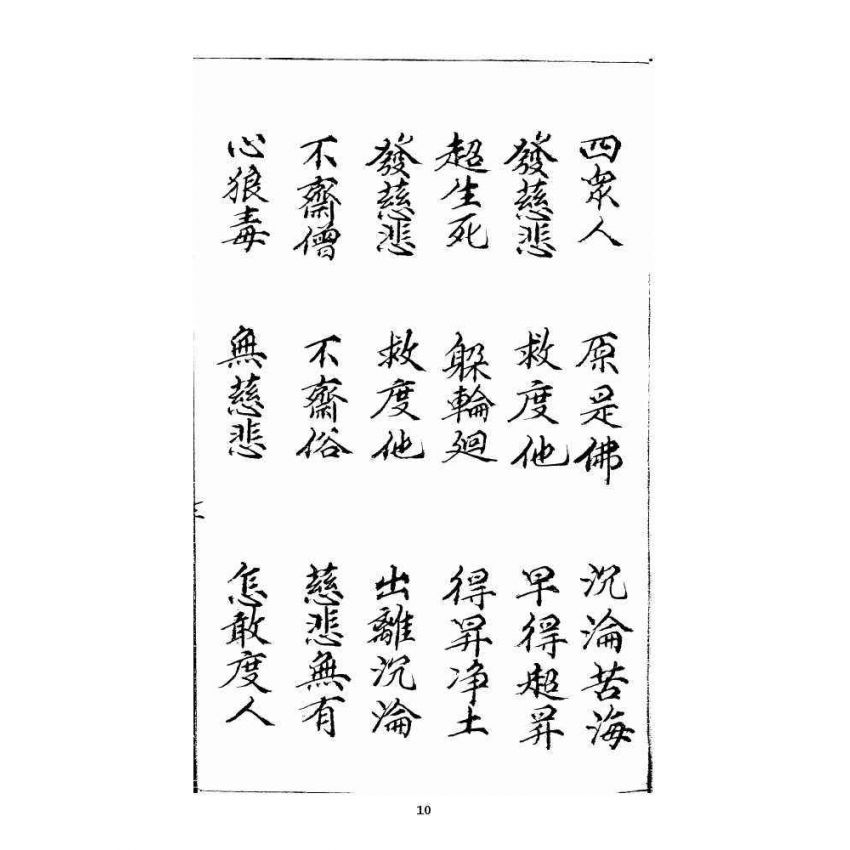 四衆人 原是佛 沉淪苦海
發慈悲 救度他 早得超昇
超生死 躲輪廻 得昇净土
發慈悲 救度他 出離沉淪
不齋僧 不齋俗 慈悲無有
心狼毒 無慈悲 怎敢度人
三
10